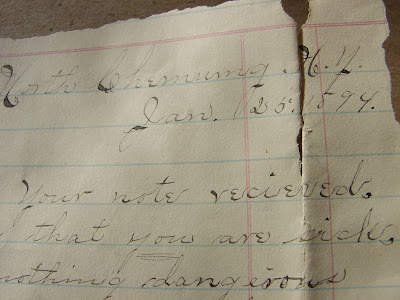 North Chemung. N.Y.
Jan. 25. 1894.
Your note recieved.
that you are sick.
nothing dangerous